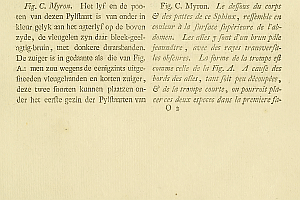 Fig. C. Myron. Het lyf en de poo-
ten van dezen Pylstaart is van onder in
kleur gelyk aan het agterlyf op de boven
zyde, de vleugelen zyn daar bleek-geel-
agtig-bruin, met donkere dwarsbanden.
De zuiger is in gedaante als die van Fig.
A: men zou wegens de eenigzints uitge-
sneeden vleugelranden en korten zuiger,
deze twee soorten kunnen plaatsen on-
der het eerste gezin der Pylstaarten van
Fig. C. Myron. Le dessous du corps
& des pattes de ce Sphinx, ressemble en
couleur à la surface supérieure de l'ab-
domen. Les ailes y sont d'un brun pâle
jaunatre, avec des rayes transversa-
les obscures. La forme de la trompe est
comme celle de la Fig. A. A cause des
bords des ailes, tant soit peu découpées,
& de la trompe courte, on pourroit pla-
cer ces deux especes dans la premiere fa-
O 2